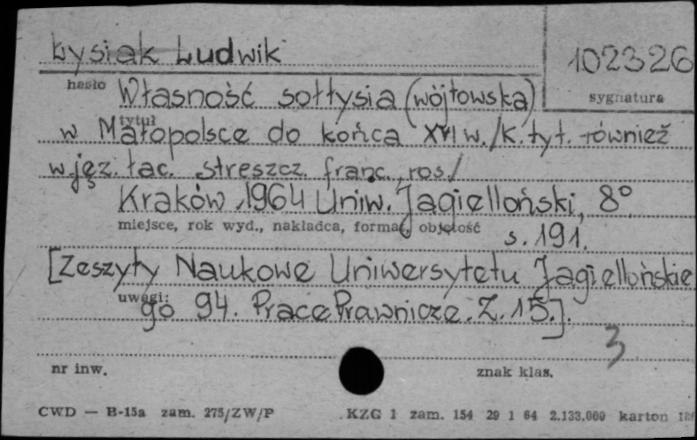 Łysiak Ludwik
102326
hasło
sygnatura
Własność sołtysia (wójtowska)
tytuł
w Małopolsce do końca XVI w. /K. tyt. również
w jęz. łac. streszcz. franc., ros./
Kraków, 1964 Uniw. Jagielloński, 8°
miejsce, rok wyd., nakładca, format, objętość
s. 191.
[Zeszyty Naukowe Uniwersytetu Jagiellońskie
uwagi:
go 94. Prace Prawnicze. Z. 15.].
3
nr inw.
znak klas.
CWD — B-15a zam. 275/ZW/P
KZG 1 zam. 154 29 1 64 2.133.000 karton